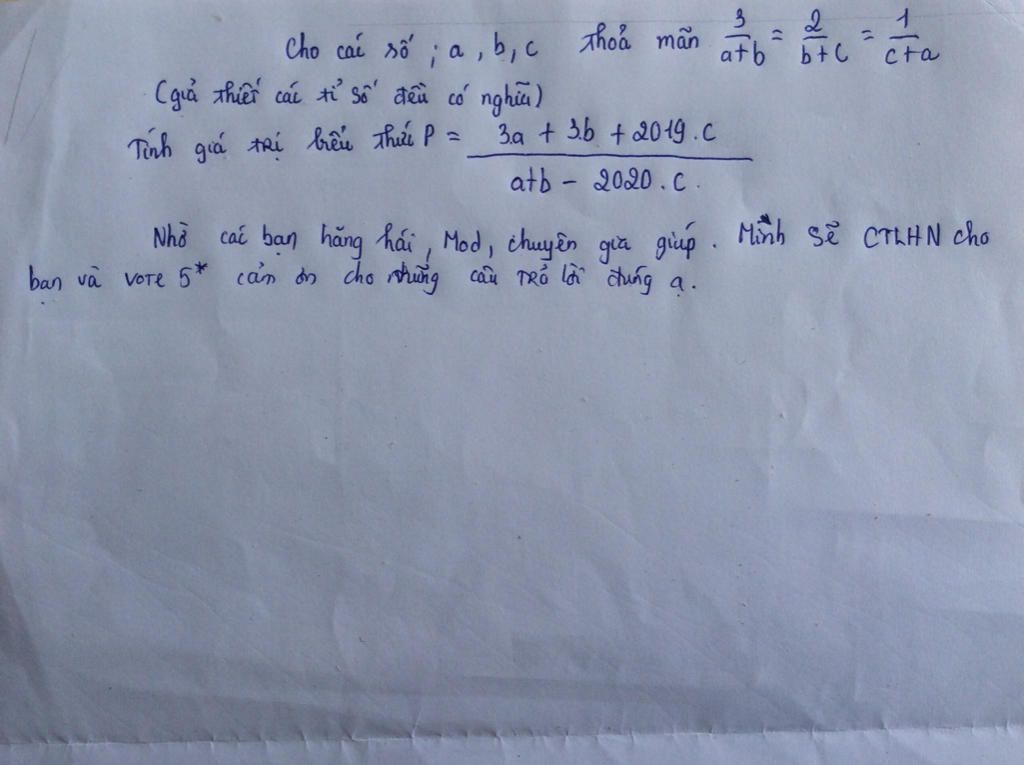 Cho các số ; a , b , c thoả mãn 3/a+b = 2/b+c = 1/c+a
(giả thiết các tỉ số đều có nghĩa)
Tính giá trị biểu thức P = 3.a + 3.b + 2019.c / a+b - 2020.c.
Nhờ các bạn hăng hái, Mod, chuyên gia giúp. Mình sẽ CTLHN cho
bạn và vote 5* cảm ơn cho những câu trả lời đúng ạ.